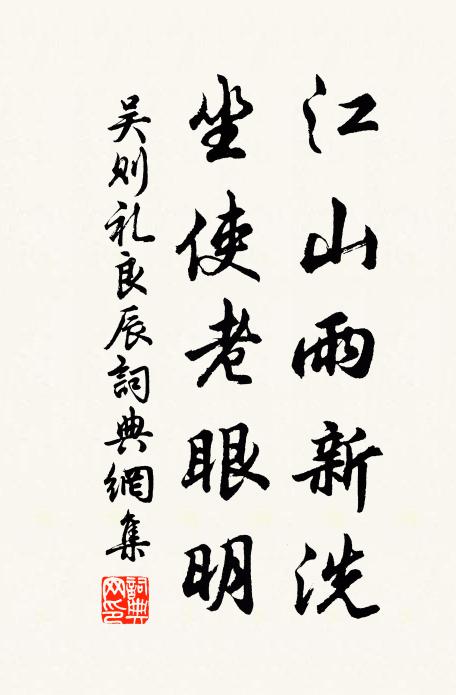 江山雨新洗
坐使老眼明
吴则礼良辰詞典網集
詞典網印